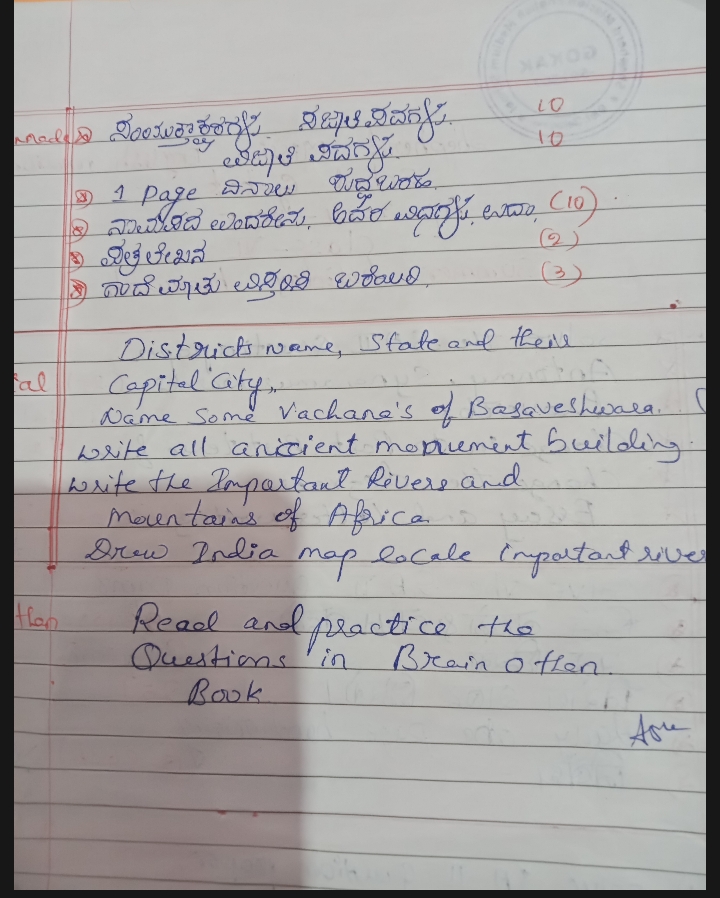 ಸಂಯುಕ್ತಾಕ್ಷರಗಳು. ಸಜಾತಿ ಪದಗಳು. 10
ವಿಜಾತಿ ಪದಗಳು. 10
1 Page ದಿನಾಲು ಶುದ್ಧಬರಹ
ನಾಮಪದ ಎಂದರೇನು. ಅದರ ವಿಧಗಳು, ಉದಾ, (10)
ಪತ್ರಲೇಖನ (2)
ಗಾದೆ ಮಾತು ವಿಸ್ತರಿಸಿ ಬರೆಯಿರಿ. (3)
Districts name, State and their
Capital City,,
Name Some Vachana's of Basaveshwara.
write all anicient monument building.
write the Important Rivers and
mountains of Africa
Draw India map locale important river
Read and practice the
Questions in Brain o than.
Book